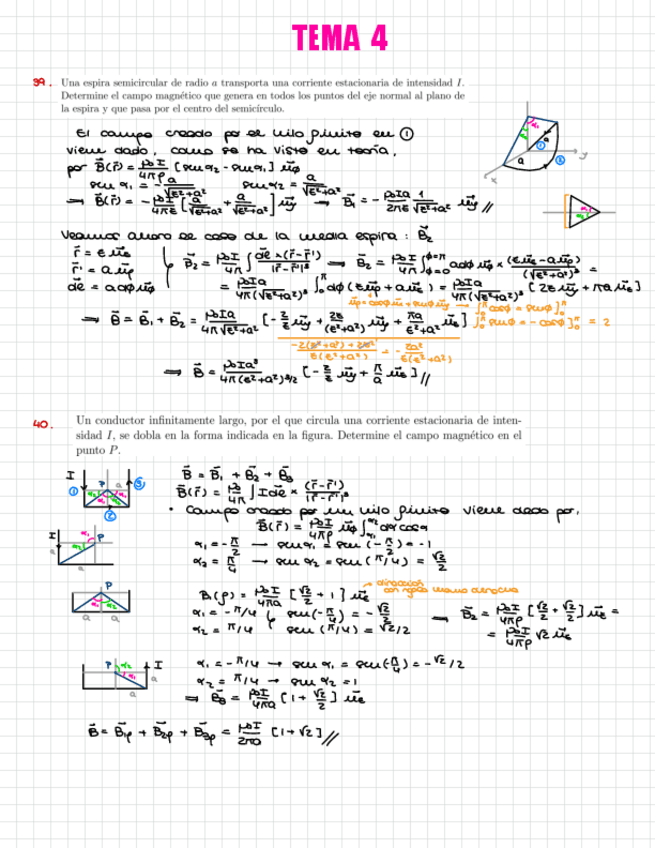 TEMA 4
39. Una espira semicircular de radio a transporta una corriente estacionaria de intensidad I.
Determine el campo magnético que genera en todos los puntos del eje normal al plano de
la espira y que pasa por el centro del semicírculo.
El campo creado por el hilo finito en ①
viene dado, como se ha visto en teoría,
por B⃗(r⃗) = μ₀I/4πρ [sen α₂ - sen α₁] u⃗φ
sen α₁ = -a/√(z²+a²) sen α₂ = a/√(z²+a²)
→ B⃗(r⃗) = -μ₀I/4πz [a/√(z²+a²) + a/√(z²+a²)] u⃗y → B⃗₁ = -μ₀Ia/2πz 1/√(z²+a²) u⃗y //
Veamos ahora el caso de la media espira: B⃗₂
r⃗ = z u⃗z
r⃗' = a u⃗ρ
dl⃗ = a dφ u⃗φ
B⃗₂ = μ₀I/4π ∫ dl⃗ × (r⃗-r⃗')/|r⃗-r⃗'|³ → B⃗₂ = μ₀I/4π ∫φ=0 φ=π a dφ u⃗φ × (z u⃗z - a u⃗ρ)/(√(z²+a²))³ =
= μ₀Ia/4π(√(z²+a²))³ ∫₀^π dφ (z u⃗ρ + a u⃗z) = μ₀Ia/4π(√(z²+a²))³ [2z u⃗y + πa u⃗z]
→ B⃗ = B⃗₁ + B⃗₂ = μ₀Ia/4π√(z²+a²) [-2/z u⃗y + 2z/(z²+a²) u⃗y + πa/z²+a² u⃗z]
∫₀^π sen φ = -cos φ]₀^π = 2
-2(z²+a²) + 2z²/z(z²+a²) = -2a²/z(z²+a²)
→ B⃗ = μ₀Ia³/4π(z²+a²)^3/2 [-2/z u⃗y + π/a u⃗z] //
40. Un conductor infinitamente largo, por el que circula una corriente estacionaria de inten-
sidad I, se dobla en la forma indicada en la figura. Determine el campo magnético en el
punto P.
B⃗ = B⃗₁ + B⃗₂ + B⃗₃
B⃗(r⃗) = μ₀/4π ∫ I dl⃗ × (r⃗-r⃗')/|r⃗-r⃗'|³
• Campo creado por un hilo finito viene dado por,
B⃗(r⃗) = μ₀I/4πρ u⃗φ ∫α₁ α₂ dα cos α
α₁ = -π/2 → sen α₁ = sen(-π/2) = -1
α₂ = π/4 → sen α₂ = sen(π/4) = √2/2
B₁(P) = μ₀I/4πa [√2/2 + 1] u⃗z → dirección
con regla mano derecha
α₁ = -π/4 sen(-π/4) = -√2/2
α₂ = π/4 sen(π/4) = √2/2
→ B⃗₂ = μ₀I/4πρ [√2/2 + √2/2] u⃗z =
= μ₀I/4πρ √2 u⃗z
α₁ = -π/4 → sen α₁ = sen(-π/4) = -√2/2
α₂ = π/4 → sen α₂ = 1
→ B⃗₃ = μ₀I/4πa [1 + √2/2] u⃗z
B⃗ = B⃗₁ₚ + B⃗₂ₚ + B⃗₃ₚ = μ₀I/2πa [1 + √2] //